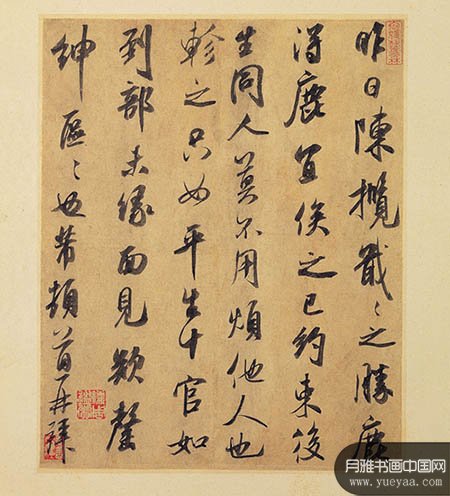 昨日陳攬戢〻之勝鹿
得鹿宜俟之已約束後
生同人莫不用煩他人也
軫之只如平生十官如
到部未緣面見欵罄
紳區〻也芾頓首再拜
月雅书画中国网
www.yueyaa.com